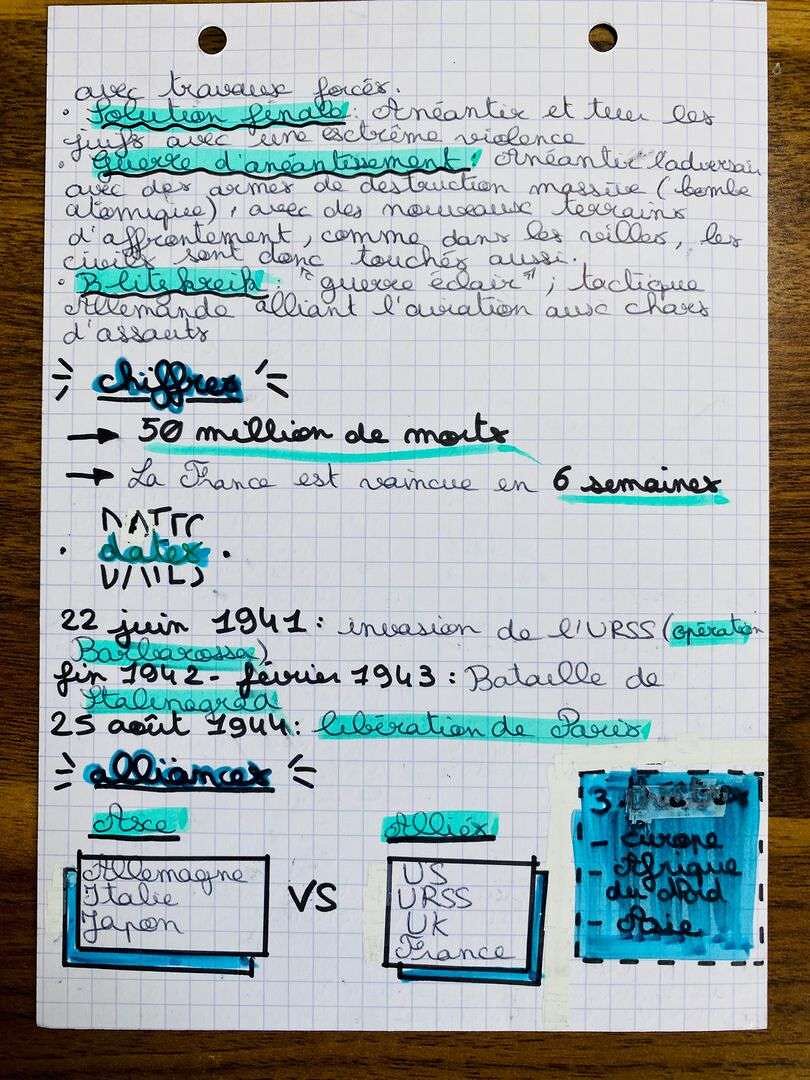 avec travaux forcés.
· Solution finale : Anéantir et tuer les
juifs avec une extrême violence
· Guerre d'anéantissement : Anéantir l'adversair
avec des armes de destruction massive (bombe
atomique), avec des nouveaux terrains
d'affrontement, comme dans les villes, les
civils sont donc touchés aussi.
· Blitzkreik : "guerre éclair" ; tactique
Allemande alliant l'aviation aux chars
d'assauts
chiffres
→ 50 million de morts
→ La France est vaincue en 6 semaines
· dates ·
22 juin 1941 : invasion de l'URSS (opération
Barbarossa)
fin 1942 - février 1943 : Bataille de
Stalinegrad
25 août 1944 : libération de Paris
alliances
Axe
Allemagne
Italie
Japon
VS
Alliés
US
URSS
UK
France
3.
- Europe
- Afrique
du Nord
- Asie